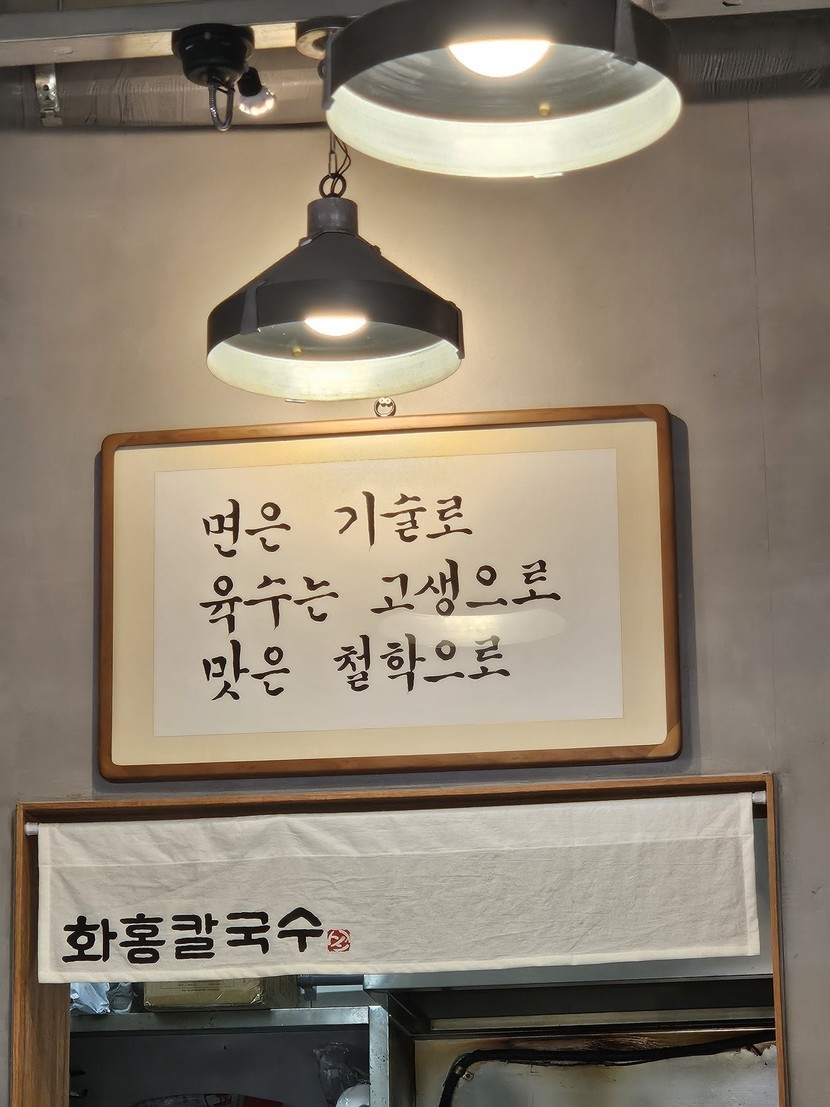 면은 기술로
육수는 고생으로
맛은 철학으로
화홍칼국수